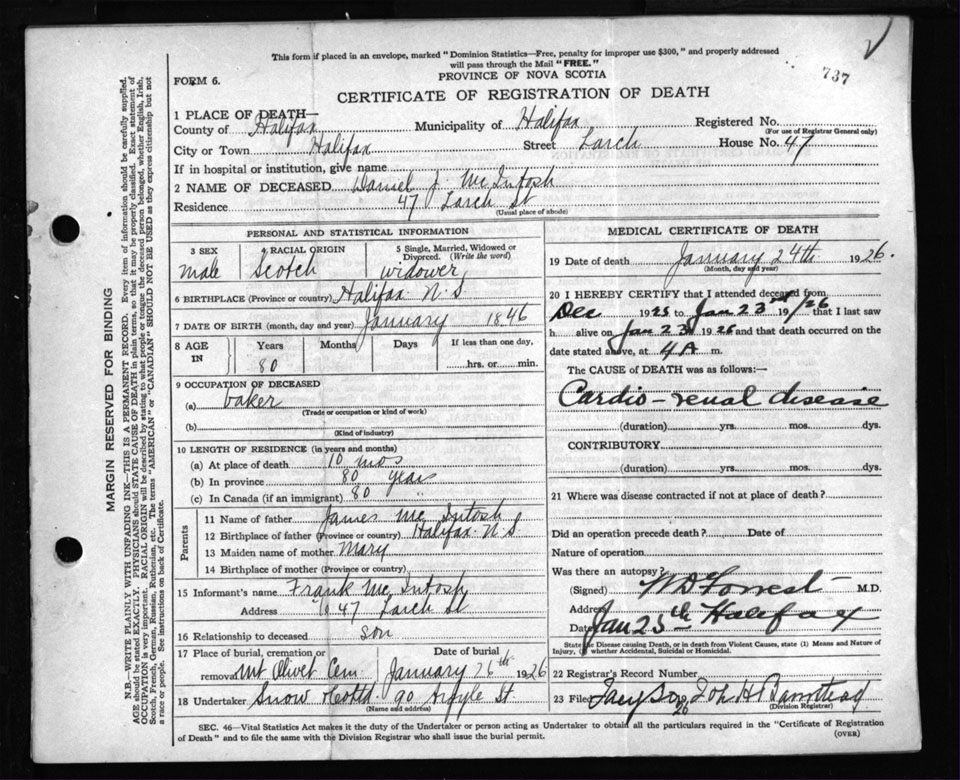 This form if placed in an envelope, marked "Dominion Statistics—Free, penalty for improper use $300," and properly addressed
will pass through the Mail "FREE."
PROVINCE OF NOVA SCOTIA
737
FORM 6.
CERTIFICATE OF REGISTRATION OF DEATH
1 PLACE OF DEATH—
County of Halifax Municipality of Halifax Registered No.
(For use of Registrar General only)
City or Town Halifax Street Larch House No. 47
If in hospital or institution, give name
2 NAME OF DECEASED Daniel J. McIntosh
Residence 47 Larch St
(Usual place of abode)
PERSONAL AND STATISTICAL INFORMATION
3 SEX 4 RACIAL ORIGIN 5 Single, Married, Widowed or Divorced. (Write the word)
male Scotch widower
6 BIRTHPLACE (Province or country) Halifax N.S
7 DATE OF BIRTH (month, day and year) January 1846
8 AGE IN Years Months Days If less than one day,
80 hrs. or min.
9 OCCUPATION OF DECEASED
(a) baker
(Trade or occupation or kind of work)
(b)
(Kind of industry)
10 LENGTH OF RESIDENCE (in years and months)
(a) At place of death 10 mos
(b) In province 80 years
(c) In Canada (if an immigrant) 80 "
Parents
11 Name of father James McIntosh
12 Birthplace of father (Province or country) Halifax N.S
13 Maiden name of mother Mary
14 Birthplace of mother (Province or country)
15 Informant's name Frank McIntosh
Address 47 Larch St
16 Relationship to deceased son
17 Place of burial, cremation or removal Date of burial
Mt Olivet Cem January 26th 1926
18 Undertaker Snow 90 Argyle St.
(Name and address)
MEDICAL CERTIFICATE OF DEATH
19 Date of death January 24th 1926.
(Month, day and year)
20 I HEREBY CERTIFY that I attended deceased from
Dec 1925 to Jan 23rd 19/26 that I last saw
h alive on Jan 23 1926 and that death occurred on
date stated above, at 4 A m.
The CAUSE of DEATH was as follows:—
Cardio-renal disease
(duration) yrs. mos. dys.
CONTRIBUTORY
(duration) yrs. mos. dys.
21 Where was disease contracted if not at place of death?
Did an operation precede death? Date of
Nature of operation
Was there an autopsy?
(Signed) W D Forrest M.D.
Address Halifax
Date Jan 25th
State the Disease causing Death, or in death from Violent Causes, state (1) Means and Nature of Injury, (2) whether Accidental, Suicidal or Homicidal.
22 Registrar's Record Number
23 Filed 26 Joh H Barnstead
(Division Registrar)
SEC. 46—Vital Statistics Act makes it the duty of the Undertaker or person acting as Undertaker to obtain all the particulars required in the "Certificate of Registration
of Death" and to file the same with the Division Registrar who shall issue the burial permit.
(OVER)
MARGIN RESERVED FOR BINDING
N.B.—WRITE PLAINLY WITH UNFADING INK—THIS IS A PERMANENT RECORD. Every item of information should be carefully supplied.
AGE should be stated EXACTLY. PHYSICIANS should STATE CAUSE OF DEATH in plain terms, so that it may be properly classified. Exact statement of
OCCUPATION is very important. RACIAL ORIGIN will be described by stating to what people or tongue the deceased person belonged, whether English, Irish,
Scotch, French, German, Russian, Ruthenian, etc. The terms "AMERICAN" or "CANADIAN" SHOULD NOT BE USED as they express citizenship but not
a race or people. See instructions on back of Certificate.